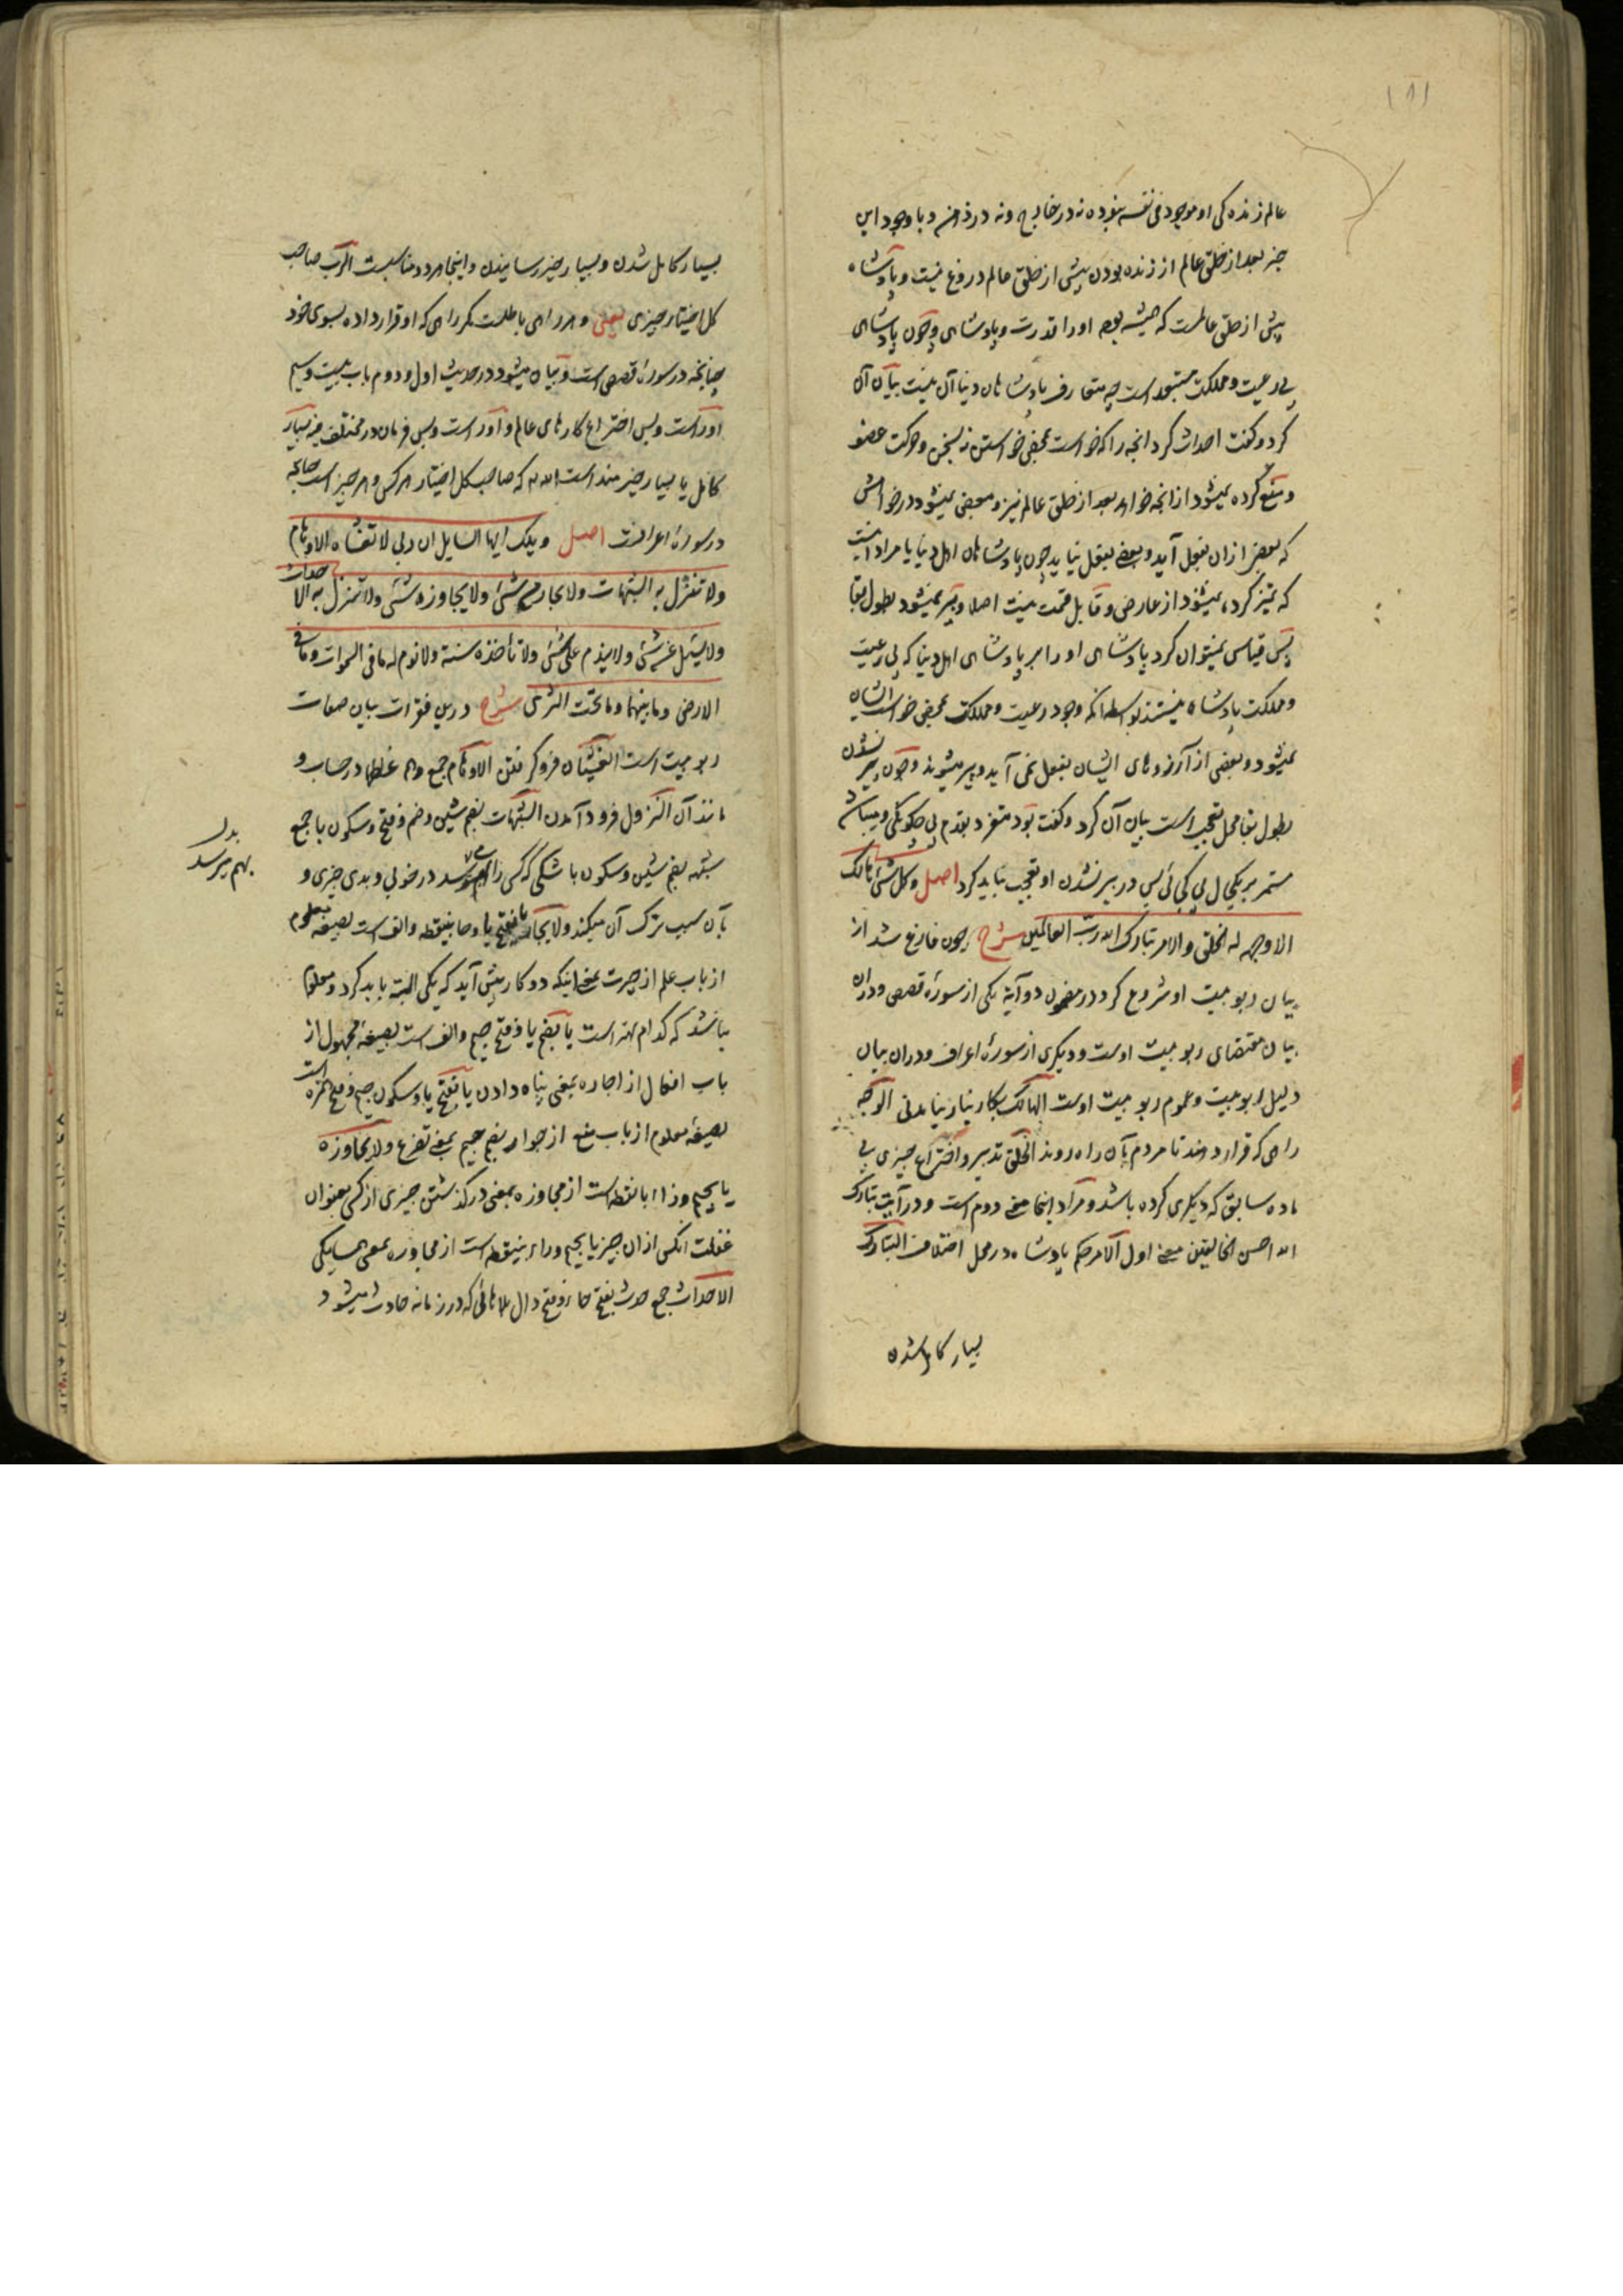 ۱۸۱
عالم زنده کی او موجود فی نفسه نبوده نه در خارج و نه در ذهن و با وجود این
خبر بعد از خلق عالم از زنده بودن پیش از خلق عالم دروغ نیست و پادشاه
پیش از خلق عالمست که همیشه بوده او را قدرت و پادشاهی و چون پادشاهی
بی رعیت و مملکت مستبعد است چه متعارف پادشاهان دنیا آن نیست بیان آن
کرد و گفت احداث کرد آنچه را که خواست بمحض خواستن نه بسخن و حرکت عضو
و منع کرده نمیشود از آنچه خواهد بعد از خلق عالم نیز و مبعض نمیشود در خواهش
که بعضی از آن بفعل آید و بعضی بفعل نیاید چون پادشاهان اهل دنیا یا مراد اینست
که تمیز کرده نمیشود از عارض و قابل قسمت نیست اصلا و پیر نمیشود بطول بقا
پس قیاس نمیتوان کرد پادشاهی او را بر پادشاهی اهل دنیا که بی رعیت
و مملکت پادشاه نیستند بواسطه آنکه وجود رعیت و مملکت بمحض خواست ایشان
نمیشود و بعضی از آرزوهای ایشان بفعل نمی آید و پیر میشوند و چون پیر نشدن
بطول بقا محل تعجب است بیان آن کرد و گفت بود متفرد بقدم بی چگونگی و میباشد
مستمر بر یکحال بی کجائی پس در پیر نشدن او تعجب نباید کرد اصل و کل شئ هالک
الا وجهه له الخلق و الامر تبارک الله رب العالمین شرح چون فارغ شد از
بیان ربوبیت او شروع کرد در مضمون دو آیة یکی از سورهٔ قصص و در آن
بیان مقتضای ربوبیت اوست و دیگری از سورهٔ اعراف و در آن بیان
دلیل ربوبیت و عموم ربوبیت اوست الهالک بکار نیاز نیامدنی الوجه
راهی که قرار دهند تا مردم بآن راه روند الخلق تدبیر و اختراع چیزی بی
ماده سابق که دیگری کرده باشد و مراد اینجا معنی دوم است و در آیت تبارک
الله احسن الخالقین معنی اول الامر حکم پادشاه در محل اختلاف التبارک
بسیار کامل شدن
بسیار کامل شدن و بسیار خیر رسانیدن و اینجا هر دو مناسبست الرب صاحب
کل اختیار چیزی یعنی و هر راهی باطلست مگر راهی که او قرار داده بسوی خود
چنانچه در سورهٔ قصص است و بیان میشود در حدیث اول و دوم باب بیست و سیم
او راست و بس اختراع کارهای عالم و او راست و بس فرمان در مختلف فیه بسیار
کامل یا بسیار خیرمند است الله که صاحب کل اختیار هر کس و هر چیز است چنانچه
در سورهٔ اعرافست اصل ویلک ایها السایل ان ربی لا تغشاه الاوهام
ولا تنزل به الشبهات ولا یحار من شئ ولا یجاوزه شئ ولا تنزل به الاحداث
ولا یسئل عن شئ ولا یندم علی شئ ولا تأخذه سنة ولا نوم له ما فی السموات وما فی
الارض وما بینهما وما تحت الثری شرح درین فقرات بیان صفات
ربوبیت است الغشیان فرو گرفتن الاوهام جمع وهم غلطها در حساب و
مانند آن النزول فرود آمدن الشبهات بضم شین و ضم و فتح و سکون با جمع
شبهه بضم شین و سکون با شکی که کسی را بهم میرسد در خوبی و بدی چیزی و
بآن سبب ترک آن میکند ولا یحار بفتح یا و حا بینقطه و الف است بصیغهٔ معلوم
از باب علم از حیرت بمعنی اینکه دو کار پیش آید که یکی البته باید کرد و معلوم
نباشد که کدام بهتر است یا بضم یا و فتح جیم و الف است بصیغهٔ مجهول از
باب افعال از اجاره بمعنی پناه دادن یا بفتح یا و سکون جیم و فتح همزه است
بصیغهٔ معلوم از باب منع از جوار بضم جیم بمعنی تضرع ولا یجاوزه
یا بجیم و زاء با نقطه است از مجاوزه بمعنی در گذشتن چیزی از کسی بعنوان
غفلت آنکس از ان چیز یا بجیم و راء بینقطه است از مجاوره بمعنی همسایگی
الاحداث جمع حدث بفتح حاء و فتح دال بلاهائی که در زمانه حادث میشود
بدل
بهم میرسد